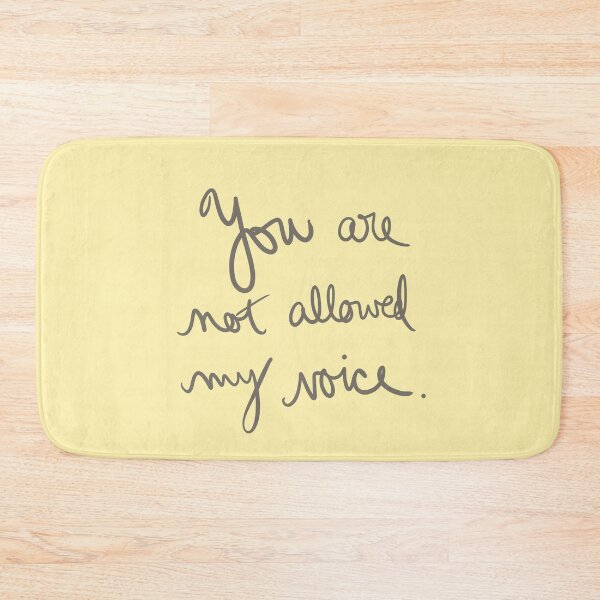 You are
not allowed
my voice.